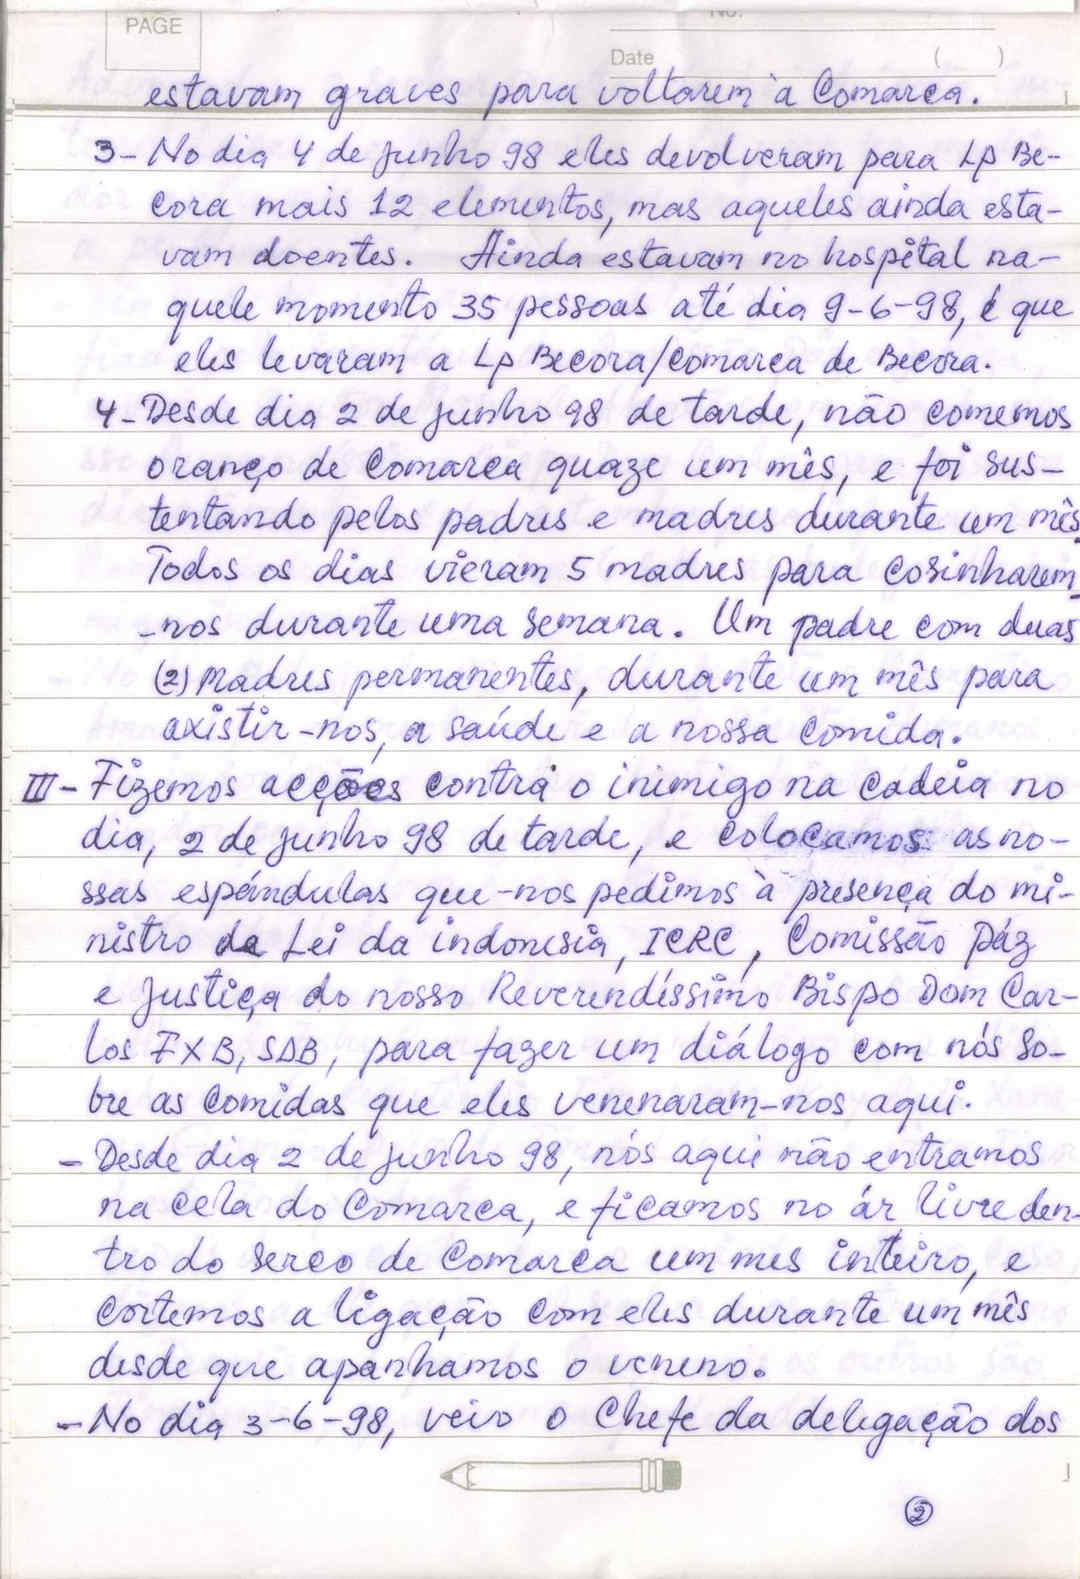 PAGE
No.
Date ( )
estavam graves para voltarem à Comarca.
3- No dia 4 de junho 98 eles devolveram para LP Be-
cora mais 12 elementos, mas aqueles ainda esta-
vam doentes. Ainda estavam no hospital na-
quele momento 35 pessoas até dia 9-6-98, é que
eles levaram a LP Becora/Comarca de Becora.
4- Desde dia 2 de junho 98 de tarde, não comemos
oranço de Comarca quaze um mês, e foi sus-
tentando pelos padres e madres durante um mês.
Todos os dias vieram 5 madres para cosinharem
-nos durante uma semana. Um padre com duas
(2) Madres permanentes, durante um mês para
axistir-nos, a saúde e a nossa comida.
III- Fizemos acções contra o inimigo na cadeia no
dia, 2 de junho 98 de tarde, e colocamos as no-
ssas espándulas que-nos pedimos à presença do mi-
nistro da Lei da indonesia, ICRC, Comissão Páz
e Justiça do nosso Reverendíssimo Bispo Dom Car-
los FXB, SDB, para fazer um diálogo com nós so-
bre as comidas que eles venenaram-nos aqui.
- Desde dia 2 de junho 98, nós aqui não entramos
na cela do Comarca, e ficamos no ár livre den-
tro do serco de Comarca um mes inteiro, e
cortemos a ligação com eles durante um mês
desde que apanhamos o veneno.
- No dia 3-6-98, veio o Chefe da delegação dos
2